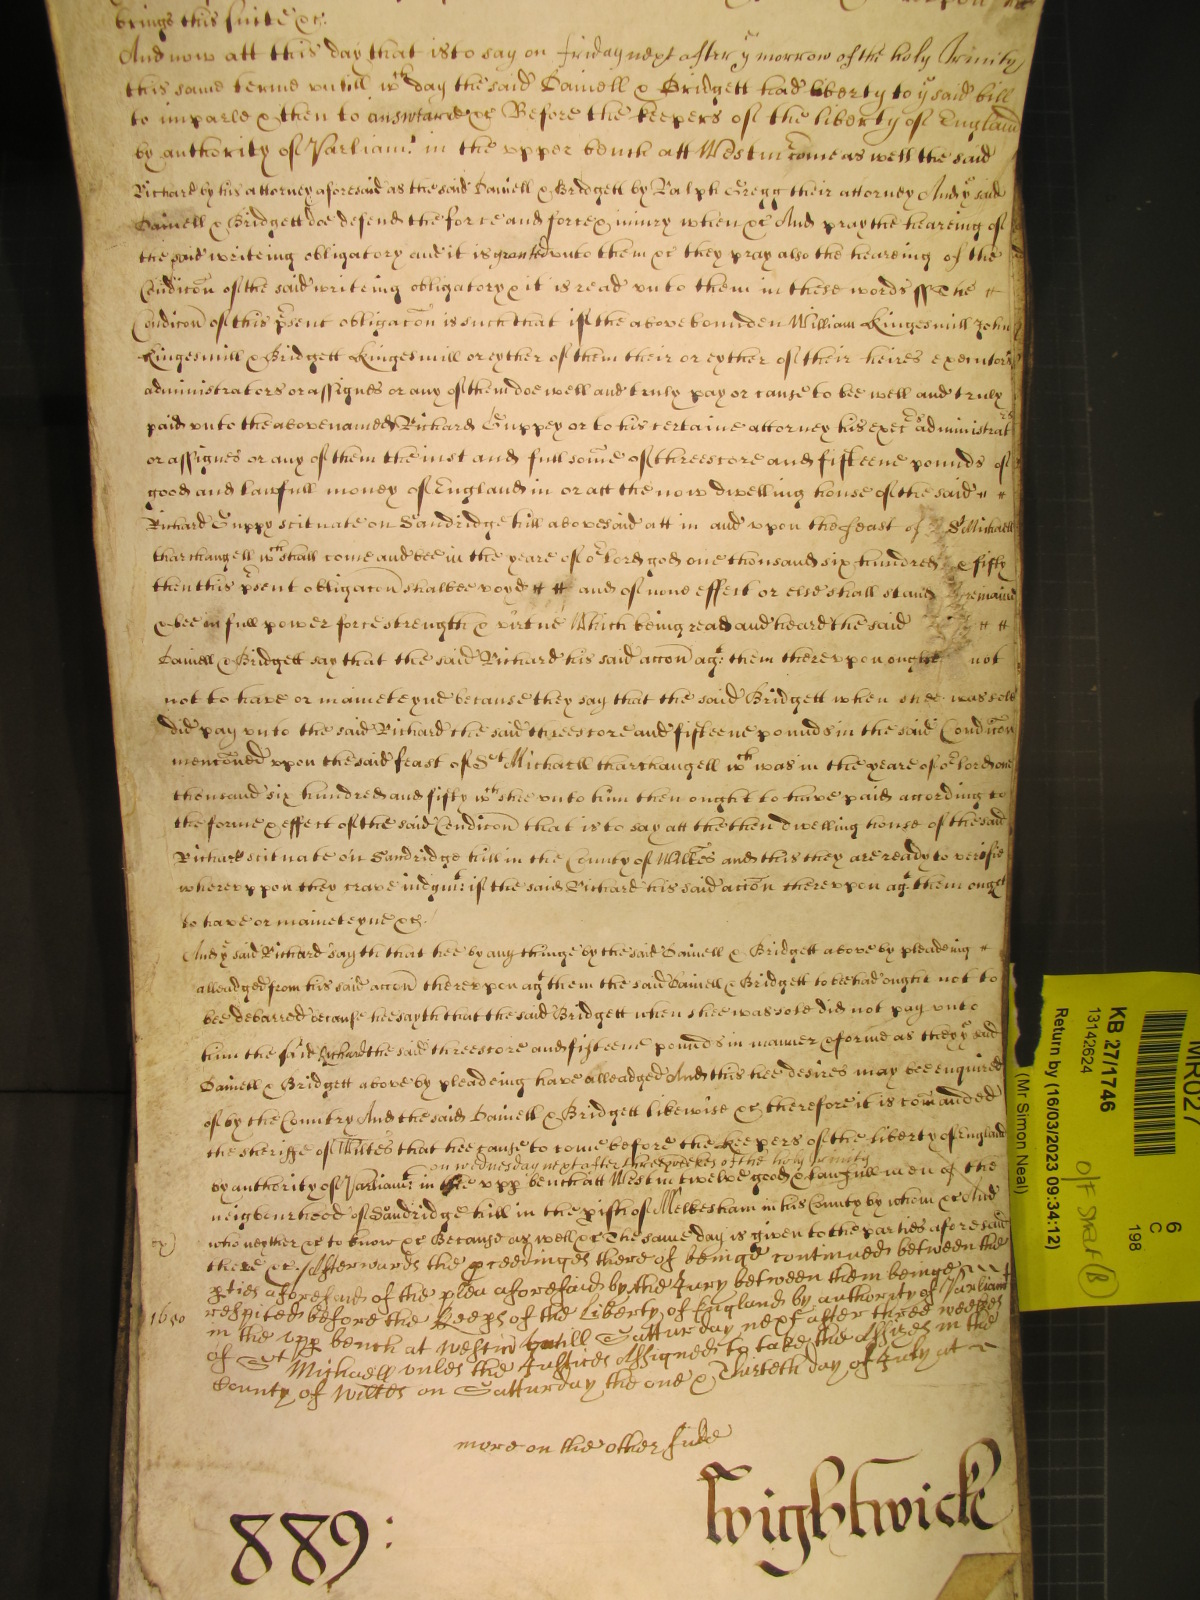 brings this suite &c:
And now att this day that is to say on Friday next after ye morrow of the holy Trinity
this same terme untill wch day the said Daniell & Bridgett had liberty to ye said bill
to imparle & then to answeare &c Before the keepers of the liberty of England
by authority of Parliamt: in the upper bench att Westm come as well the said
Richard by his attorney aforesaid as the said Daniell & Bridgett by Ralph Gregg their attorney And ye said
Daniell & Bridgett doe defend the force and force & iniury when &c And pray the heareing of
the said writeing obligatory and it is granted unto them &c they pray also the heareing of the
Condicon of the said writeing obligatory & it is read unto them in these words ss The
Condicon of this psent obligacon is such that if the above bounden William Kingesmill John
Kingesmill & Bridgett Kingesmill or eyther of them their or eyther of their heires executors
administrators or assignes or any of them doe well and truly pay or cause to bee well and truly
paid unto the above named Richard Guppey or to his certaine attorney his execrs administratrs
or assignes or any of them the iust and full some of threescore and fifteene pounds of
good and lawfull money of England in or att the now dwelling house of the said
Richard Guppy scituate on Sandridge hill abovesaid att in and upon the feast of St Michaell
tharchangell wch shall come and bee in the yeare of or lord god one thousand six hundred & fifty
then this psent obligacon shalbee voyd and of none effect or else shall stand remaine
& bee in full power force strength & virtue Which being read and heard the said
Daniell & Bridgett say that the said Richard his said accon agt: them thereupon ought not
not to have or mainteyne because they say that the said Bridgett when shee was sole
did pay unto the said Richard the said threescore and fifteene pounds in the said Condicon
menconed upon the said feast of St Michaell tharchangell wch was in the yeare of or lord one
thousand six hundred and fifty wch she unto him then ought to have paid according to
the forme & effect of the said Condicon that is to say att the then dwelling house of the said
Richard scituate on Sandridge hill in the County of Wiltes and this they are ready to verifie
whereuppon they crave iudgmt: if the said Richard his said accon thereupon agt. them ought
to have or mainteyne &c.
And ye said Richard sayth that hee by any thinge by the said Daniell & Bridgett above by pleadeing
alleadged from his said accon thereupon agt them the said Daniell & Bridgett to bee had ought not to
bee debarred because hee sayth that the said Bridgett when shee was sole did not pay unto
him the said Richard the said threescore and fifteene pounds in manner & forme as they ye said
Daniell & Bridgett above by pleadeing have alleadged And this hee desires may bee enquired
of by the Country And the said Daniell & Bridgett likewise &c therefore it is comanded
the sheriffe of Wiltes that hee cause to come before the keepers of the liberty of England
on wednesday next after three weekes of the holy Trinity
by authority of Parliamt: in the upp bench att Westm twelve good & lawfull men of the
neighbourhood of Sandridge hill in the pish of Melkesham in his County by whom &c And
who neyther &c to know &c Because as well &c The same day is given to the parties aforesaid
there &c. Afterwards the pceedinges there of beinge continued between the
pties aforesaid of the plea aforesaid by the Jury between them beinge
1650
respited before the Keeps of the Liberty of England by authority of Parliamt
in the upp bench at Westm untill Satturday next after three weekes
of St Michaell unles the Justices Assigned to take the Assises in the
County of Wiltes on Satturday the one & Thirteth day of July at
more on the other side
889:
Wightwick
MR027
KB 27/1746
13142624
6
C
198
Return by (16/03/2023 09:34:12)
(Mr Simon Neal)